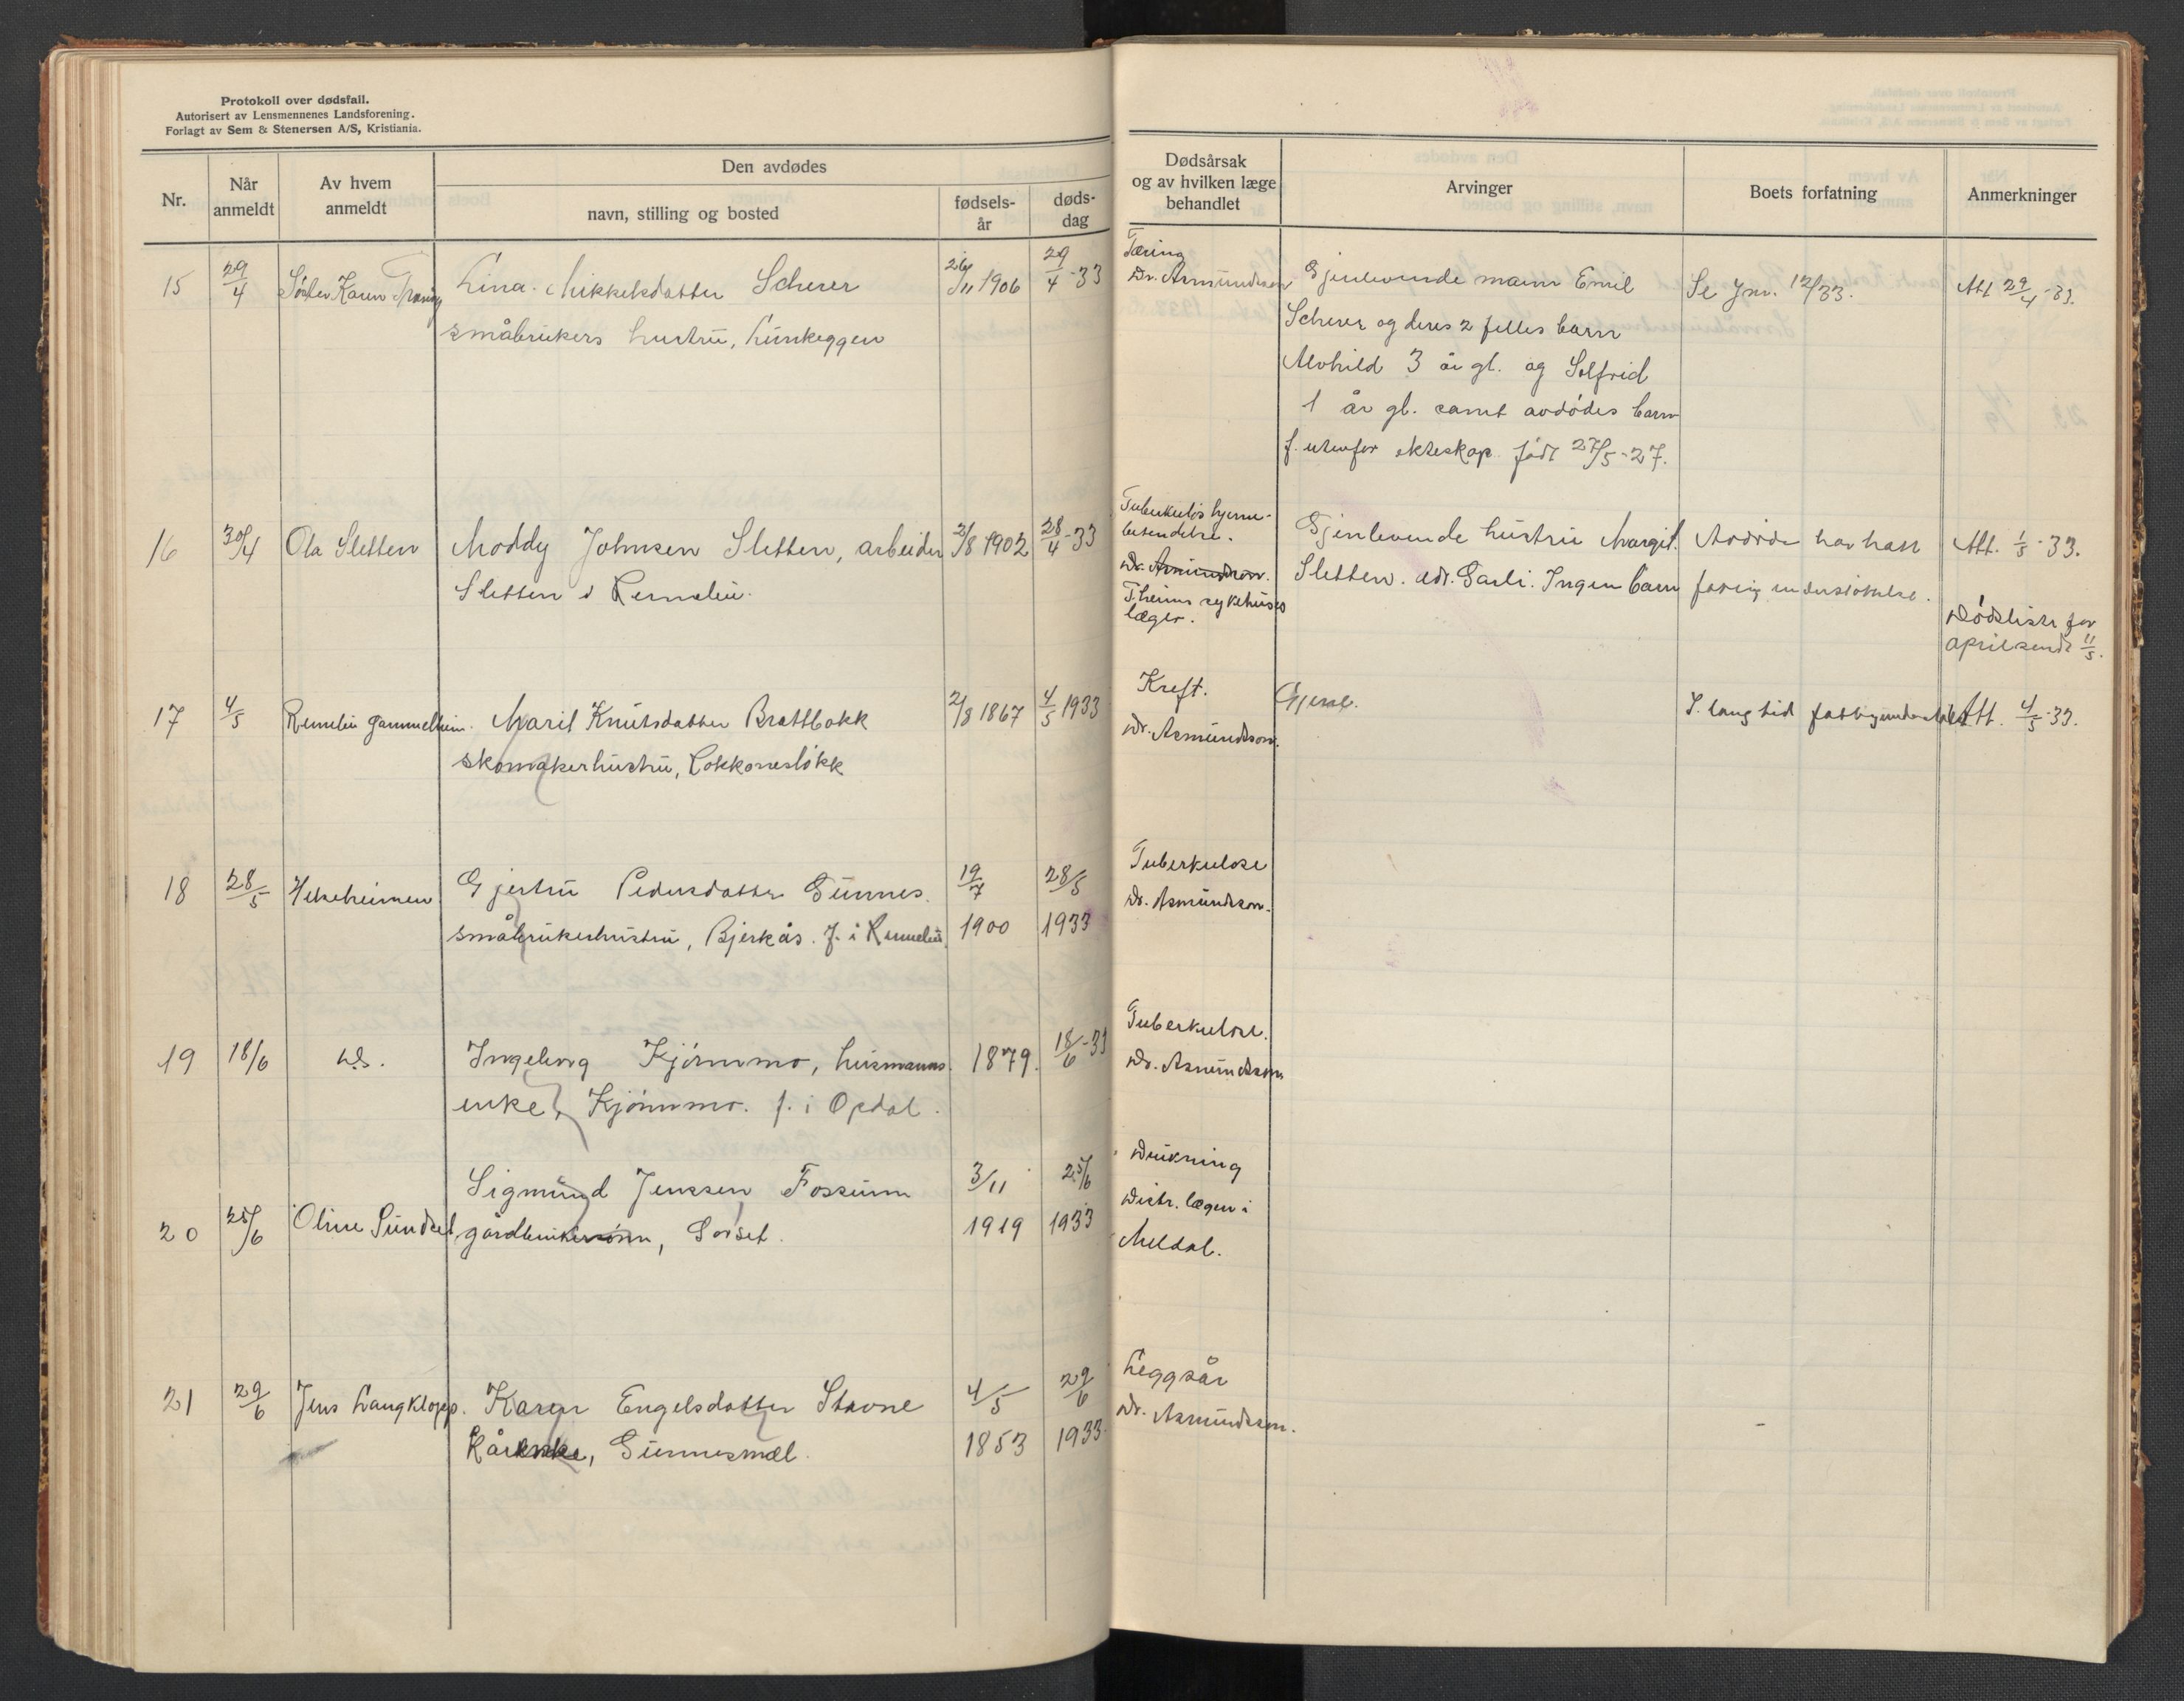 Protokoll over dødsfall.
Autorisert av Lensmennenes Landsforening.
Forlagt av Sem & Stenersen A/S, Kristiania.
Nr.
Når anmeldt
Av hvem anmeldt
Den avdødes
navn, stilling og bosted
fødsels-år
døds-dag
Dødsårsak og av hvilken læge behandlet
Arvinger
Boets forfatning
Anmerkninger
15 29/4 Søster Karen
Lina Mikkelsdatter Scherer 26/11 1906 29/4-33
småbrukers hustru, Lunkeggen
Tæring
Dr. Asmundson
Gjenlevende mann Emil
Scherer og deres 2 felles barn
Alvhild 3 år gl. og Solfrid
1 år gl. samt avdødes barn
f. utenfor ekteskap født 27/5-27.
Se Jnr. 12/33.
Att 29/4-33.
16 30/4 Ola Sletten
Moddy Johnsen Sletten, arbeider 2/8 1902 28/4-33
Sletten i Rennebu.
Tuberkuløs hjerne-
betendelse.
Dr. Asmundson.
T.heims sykehuses
læger.
Gjenlevende hustru Margit
Sletten. adr. Garli. Ingen barn
Avdøde har hatt
understøttelse.
Att. 1/5-33.
Dødsliste for
april sendt 11/5.
17 4/5 Rennebu gammelheim.
Marit Knutsdatter Brattbakk 2/8 1867 4/5 1933
skomakerhustru, Lokkonesløkk
Kreft.
Dr. Asmundson.
I lang tid
Att. 4/5-33.
18 28/5 Helseheimen
Gjertru Pedersdatter Gunnes. 19/7 28/5
småbrukerhustru, Bjerkås. f. i Rennebu. 1900 1933
Tuberkulose
Dr. Asmundson.
19 18/6 ds.
Ingeborg Kjønnmo, husmanns- 1879. 18/6-33
enke, Kjønnmo. f. i Opdal.
Tuberkulose.
Dr. Asmundson
Sigmund Jenssen Fossum 3/11 25/6
20 25/6 Oline Sundset gårdbrukersønn, Sorset. 1919 1933
Drukning
Distr. lægen i
Meldal.
21 29/6 Jens Langklopp.
Karen Engelsdatter Stavne 4/5 29/6
Kårenke, Gunnesmæl. 1853 1933
Leggsår
Dr. Asmundson.